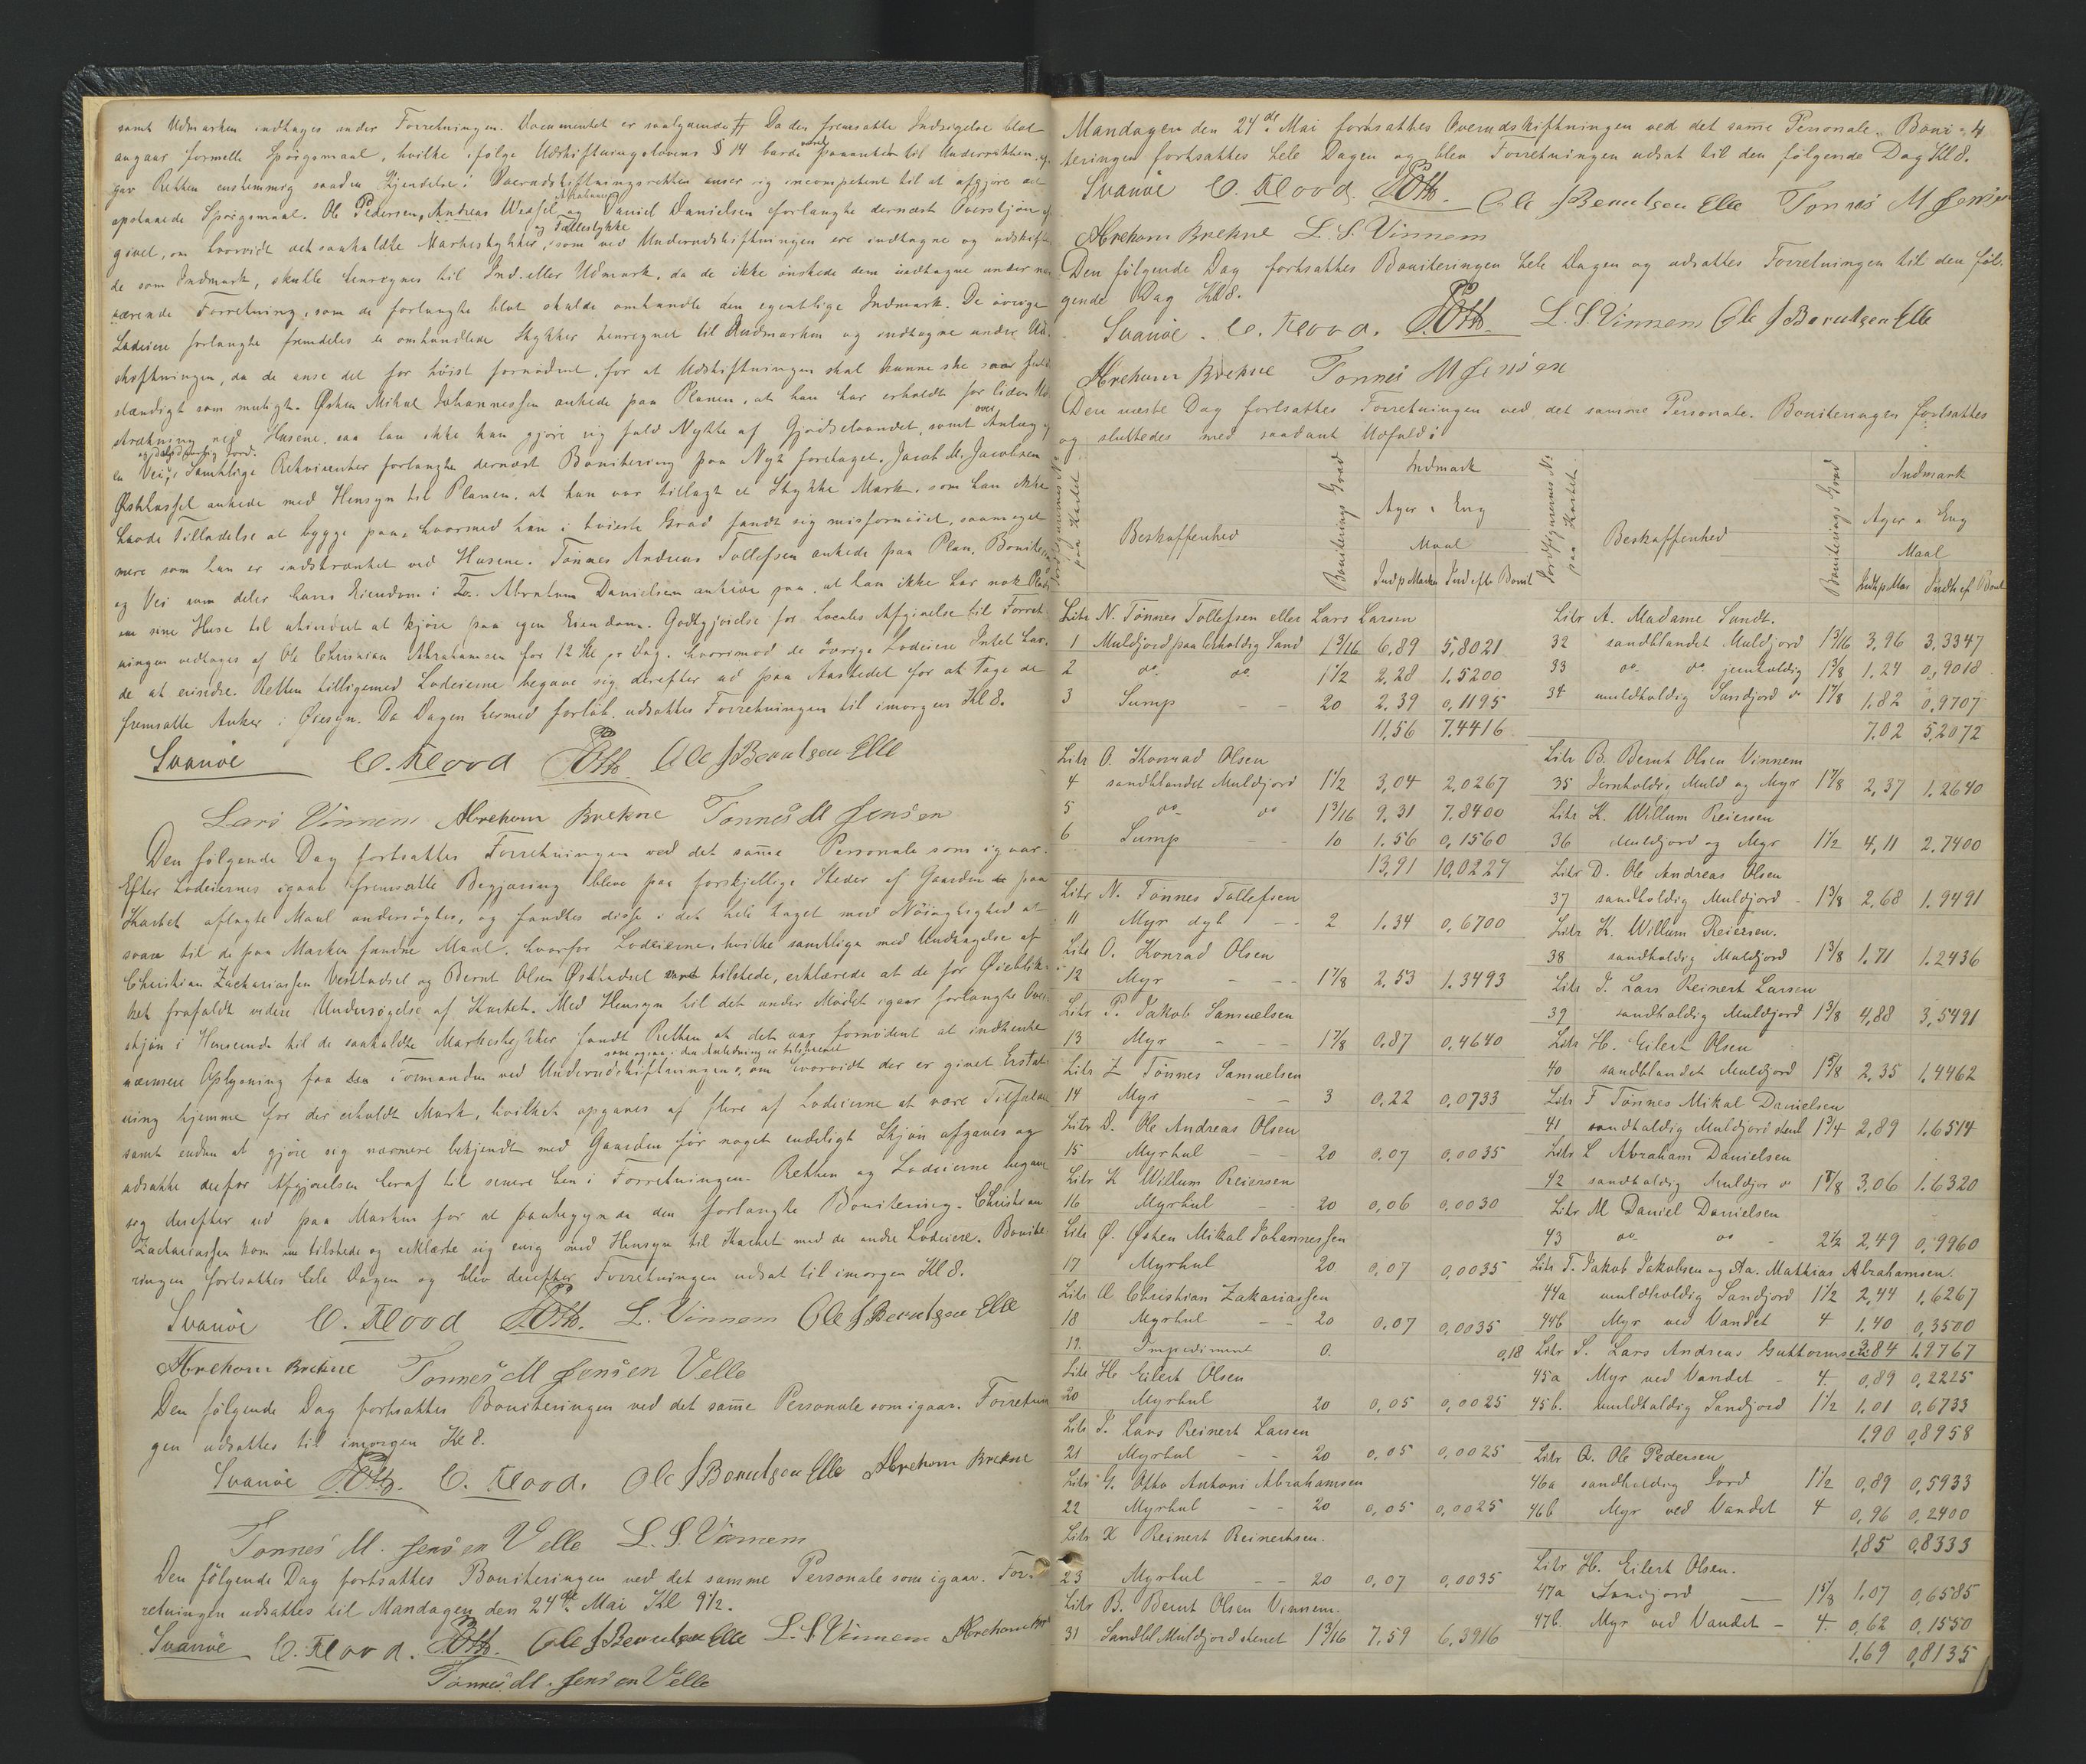 samt Udmarken indtages under Forretningen. Documentet er saalydende # Da den fremsatte Indsigelse blot
angaar formelle Spörgsmaal, hvilke ifölge Udskiftningslovens § 14 burde være paaanket til Underretten,
gav Retten enstemmig saadan Kjendelse: Overudskiftningsretten anser sig incompetent til at afgjöre det
opstaaede Spörgsmaal. Ole Pedersen, Andreas Wessel og Daniel Danielsen forlangte dernæst Overskjön af-
givet, om hvorvidt de saakaldte Markestykker og Fællestykke, som ved Underudskiftningen ere indtagne og udskift-
de som Indmark, skulle henregnes til Ind- eller Udmark, da de ikke önskede dem indtagne under nær-
værende Forretning, som de forlangte blot skulde omhandle den egentlige Indmark. De övrige
Lodeiere forlangte fremdeles de omhandlede Stykker henregnet til Indmarken og indtagne under Ud-
skiftningen, da de anse det for höist fornödent, for at Udskiftningen skal kunne ske saa fuld-
stændigt som muligt. Østen Mikal Johannessen ankede paa Planen, at han har erholdt for liden Ud-
strækning ved Husene, saa han ikke kan gjöre sig fuld Nytte af Gjödselvandet, samt over Anlæg af
en Vei. Samtlige Rekvirenter forlangte dernæst Bonitering paa Nyt foretaget. Jacob M. Jacobsen
Østhassel ankede med Hensyn til Planen, at han var tillagt et Stykke Mark, som han ikke
havde Tilladelse at bygge paa, hvormed han i höieste Grad fandt sig misfornöiet, saameget
mere som han er indskrænket ved Husene. Tönnes Andreas Tollefsen ankede paa Plan, Bonitering
og Vei som deler hans Eiendom i To. Abraham Danielsen ankede paa, at han ikke har nok Plads
om sine Huse til uhindret at kjöre paa egen Eiendom. Godtgjörelse for Locales Afgivelse til Forret-
ningen vedtages af Ole Christian Abrahamsen for 12 Sk pr Dag, hvorimod de övrige Lodeiere Intet hav-
de at erindre. Retten tilligemed Lodeierne begave sig derefter ud paa Aastedet for at tage de
fremsatte Anker i Öiesyn. Da Dagen hermed forlöb, udsattes Forretningen til imorgen Kl 8.
Svanöe C. Flood POtt. Ole J Berntsen Elle
Lars Vinnem Abrehom Brekne Tönnes M Jensen
Den fölgende Dag fortsattes Forretningen ved det samme Personale som igaar.
Efter Lodeiernes igaar fremsatte Begjæring bleve paa forskjellige Steder af Gaarden de paa
Kartet aflagte Maal undersögte, og fandtes disse i det hele taget med Nöiagtighed at
svare til de paa Marken fundne Maal, hvorfor Lodeierne, hvilke samtlige med Undtagelse af
Christian Zachariassen Vesthassel og Bernt Olsen Østhassel vare tilstede, erklærede at de for Öieblik-
ket frafaldt videre Undersögelse af Kartet. Med Hensyn til det under Mödet igaar forlangte Over-
skjön i Henseende til de saakaldte Markestykker fandt Retten at det var fornödent at indhente
nærmere Oplysning fra Formanden ved Underudskiftningen, som ogsaa i den Anledning er tilskrevet om hvorvidt der er givet Erstat-
ning hjemme for der erholdt Mark, hvilket opgaves af flere af Lodeierne at være Tilfældet
samt enden at gjöre sig nærmere bekjendt med Gaarden för noget endeligt Skjön afgaves og
udsatte derfor Afgjörelsen heraf til senere hen i Forretningen. Retten og Lodeierne begave
sig derefter ud paa Marken for at paabegynde den forlangte Bonitering. Christian
Zachariassen kom nu tilstede og erklærte sig enig med Hensyn til Kartet med de andre Lodeiere. Bonite-
ringen fortsattes hele Dagen og blev derefter Forretningen udsat til imorgen Kl 8.
Svanöe C. Flood POtt. L. Vinnem Ole J Berntsen Elle
Abrehom Brekne Tönnes M Jensen Velle
Den fölgende Dag fortsattes Boniteringen ved det samme Personale som igaar. Forretnin-
gen udsattes til imorgen Kl 8.
Svanöe POtt. C. Flood. Ole J Berntsen Elle Abrehom Brekne
Tönnes M. Jensen Velle L. S. Vinnem
Den fölgende Dag fortsattes Boniteringen ved det samme Personale som igaar. For-
retningen udsattes til Mandagen den 24de Mai Kl 9½.
Svanöe C. Flood. POtt. Ole J Berntsen Elle L. S. Vinnem Abrehom
Tönnes. M. Jensen Velle
Mandagen den 24de Mai fortsattes Overudskiftningen ved det samme Personale. Boni- 4
teringen fortsattes hele Dagen og blev Forretningen udsat til den fölgende Dag Kl 8.
Svanöe C. Flood. POtt. Ole J Berntsen Elle Tonnes M Jensen
Abrehom Brekne L. S. Vinnem
Den fölgende Dag fortsattes Boniteringen hele Dagen og udsattes Forretningen til den föl-
gende Dag Kl 8.
Svanöe. C. Flood. POtt. L. S Vinnem Ole J Berntsen Elle
Abrehom Brekne Tonnes M Jensen
Den næste Dag fortsattes Forretningen ved det samme Personale. Boniteringen fortsattes
og sluttedes med saadant Udfald:
Jordfigurernes No paa Kartet
Beskaffenhed
Boniterings Grad
Indmark
Ager & Eng
Maal
Ind p Marken Ind efter Bonit
Litr N. Tönnes Tollefsen eller Lars Larsen
1 Muldjord paa lerholdig Sand 1 3/16 6,89 5,8021
2 do. do 1½ 2,28 1,5200
3 Sump - - 20 2,39 0,1195
11,56 7,4416
Litr O. Konrad Olsen
4 sandblandet Muldjord 1½ 3,04 2,0267
5 do do 1 3/16 9,31 7,8400
6 Sump - - 10 1,56 0,1560
13,91 10,0227
Litr N. Tönnes Tollefsen
11 Myr dyb - - 2 1.34 0,6700
Litr O. Konrad Olsen
12 Myr - - - 1 7/8 2,53 1.3493
Litr P. Jakob Samuelsen
13 Myr - - - 1 7/8 0,87 0,4640
Litr Z Tönnes Samuelsen
14 Myr - - 3 0,22 0,0733
Litr D. Ole Andreas Olsen
15 Myrhul - - 20 0,07 0,0035
Litr K Willum Reiersen
16 Myrhul - - 20 0,06 0,0030
Litr Ø. Østen Mikal Johannessen
17 Myrhul 20 0,07 0,0035
Litr C Christian Zakariassen
18 Myrhul - - 20 0,07 0,0035
19. Impediment 0. 0,18
Litr H. Eilert Olsen
20 Myrhul 20 0,05 0,0025
Litr J. Lars Reinert Larsen
21 Myrhul - - 20 0,05 0,0025
Litr G. Otto Antoni Abrahamsen
22 Myrhul - - 20 0,05 0,0025
Litr X Reinert Reinertsen.
23 Myrhul - - 20 0,07 0,0035
Litr B. Bernt Olsen Vinnem.
31 Sandbl Muldjord stenet 1 3/16 7,59 6,3916
Jordfigurernes No paa Kartet
Beskaffenhed
Boniterings Grad
Indmark
Ager & Eng
Maal
Indt p Mar Indt ef Bonit
Litr A. Madame Sundt.
32 sandblandet Muldjord 1 3/16 3,96 3,3347
33 do. do jernholdig 1 3/8 1,24 0,9018
34 muldholdig Sandjord do 1 7/8 1,82 0,9707
7,02 5,2072
Litr B. Bernt Olsen Vinnem
35 Jernholdig Muld og Myr 1 7/8 2,37 1,2640
Litr K. Willum Reiersen
36 Muldjord og Myr 1½ 4,11 2,7400
Litr D. Ole Andreas Olsen
37 sandholdig Muldjord - 1 3/8 2,68 1,9491
Litr K. Willum Reiersen.
38 sandholdig Muldjord 1 3/8 1,71 1,2436
Litr J. Lars Reinert Larsen
39 sandholdig Muldjord 1 3/8 4,88 3,5491
Litr H. Eilert Olsen
40 sandblandet Muldjord 1 5/8 2,35 1,4462
Litr F Tönnes Mikal Danielsen
41 sandholdig Muldjord stenet 1 3/4 2,89 1,6514
Litr L Abraham Danielsen
42 sandholdig Muldjor do 1 7/8 3,06 1,6320
Litr M Daniel Danielsen
43 do do - 2½ 2,49 0,9960
Litr T. Jakob Jakobsen og Aa. Mathias Abrahamsen.
44a muldholdig Sandjord 1½ 2,44 1,6267
44b Myr ved Vandet 4 1,40 0,3500
Litr S. Lars Andreas Guttormsen 3,84 1,9767
45a Myr ved Vandet - 4. 0,89 0,2225
45b. muldholdig Sandjord 1½ 1,01 0,6733
1,90 0,8958
Litr Q. Ole Pedersen
46a sandholdig Jord 1½ 0,89 0,5933
46b Myr ved Vandet 4 0,96 0,2400
1,85 0,8333
Litr H. Eilert Olsen.
47a Sandjord — 1 5/8 1,07 0,6585
47b. Myr ved Vandet - 4. 0,62 0,1550
1,69 0,8135